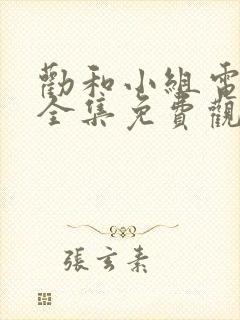 勸和小組電
全集免費觀
張玄素